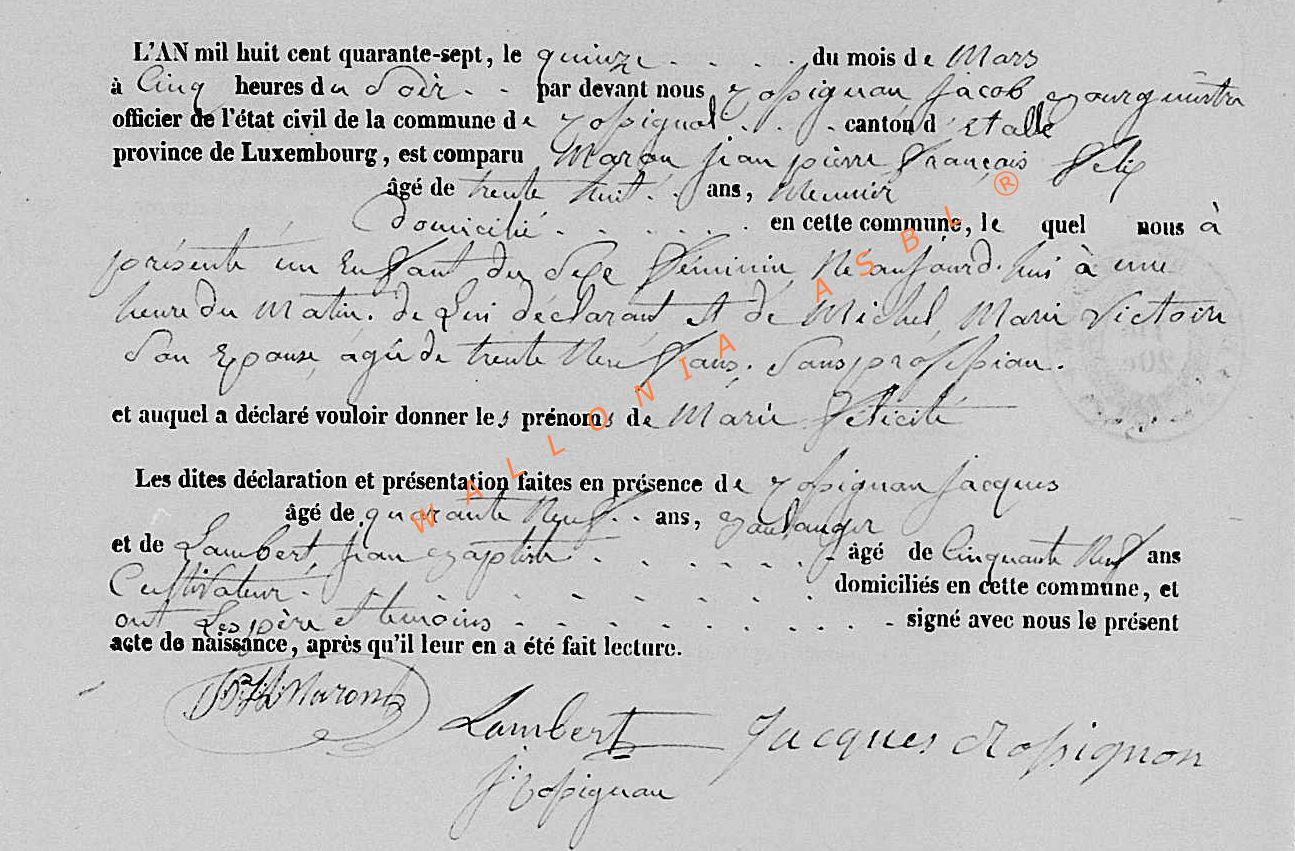 L'AN mil huit cent quarante-sept, le quinze . . . . du mois de Mars
à Cinq heures du Soir . . par devant nous Rossignon Jacob Bourgmestre
officier de l'état civil de la commune de Rossignol . . . canton d'Etalle
province de Luxembourg, est comparu Maron Jean pierre François Felix
âgé de trente huit . . ans, Meunier
Domicilié . . . . . . en cette commune, le quel nous à
présenté un Enfant du Sexe féminin Né aujourd'hui à une
heure du Matin. de Lui déclarant et de Michel, Marie Victoire
Son Epouse, agée de trente Neuf ans. Sans profession.
et auquel a déclaré vouloir donner les prénoms de Marie Félicité
Les dites déclaration et présentation faites en présence de Rossignon Jacques
âgé de quarante Neuf . . ans, Boulanger
et de Lambert, Jean Baptiste . . . . . . âgé de Cinquante Neuf ans
Cultivateur . . . . . . . . domiciliés en cette commune, et
ont Les père et temoins . . . . . . . . . signé avec nous le présent
acte de naissance, après qu'il leur en a été fait lecture.
Maron
Lambert Jacques Rossignon
J. Rossignon
WALLONIA ASBL ®